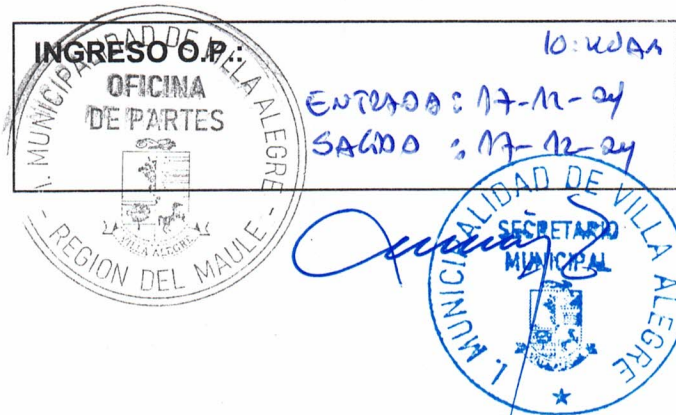 INGRESO O.P.:
I. MUNICIPALIDAD DE VILLA ALEGRE
OFICINA
DE PARTES
VILLA ALEGRE
- REGION DEL MAULE -
ENTRADA : 17-12-24
SALIDA : 17-12-24
I. MUNICIPALIDAD DE VILLA ALEGRE
SECRETARIO
MUNICIPAL